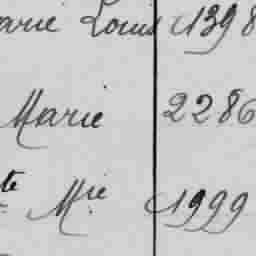 arie Louis 1398
Marie 2286
te Mie 1999